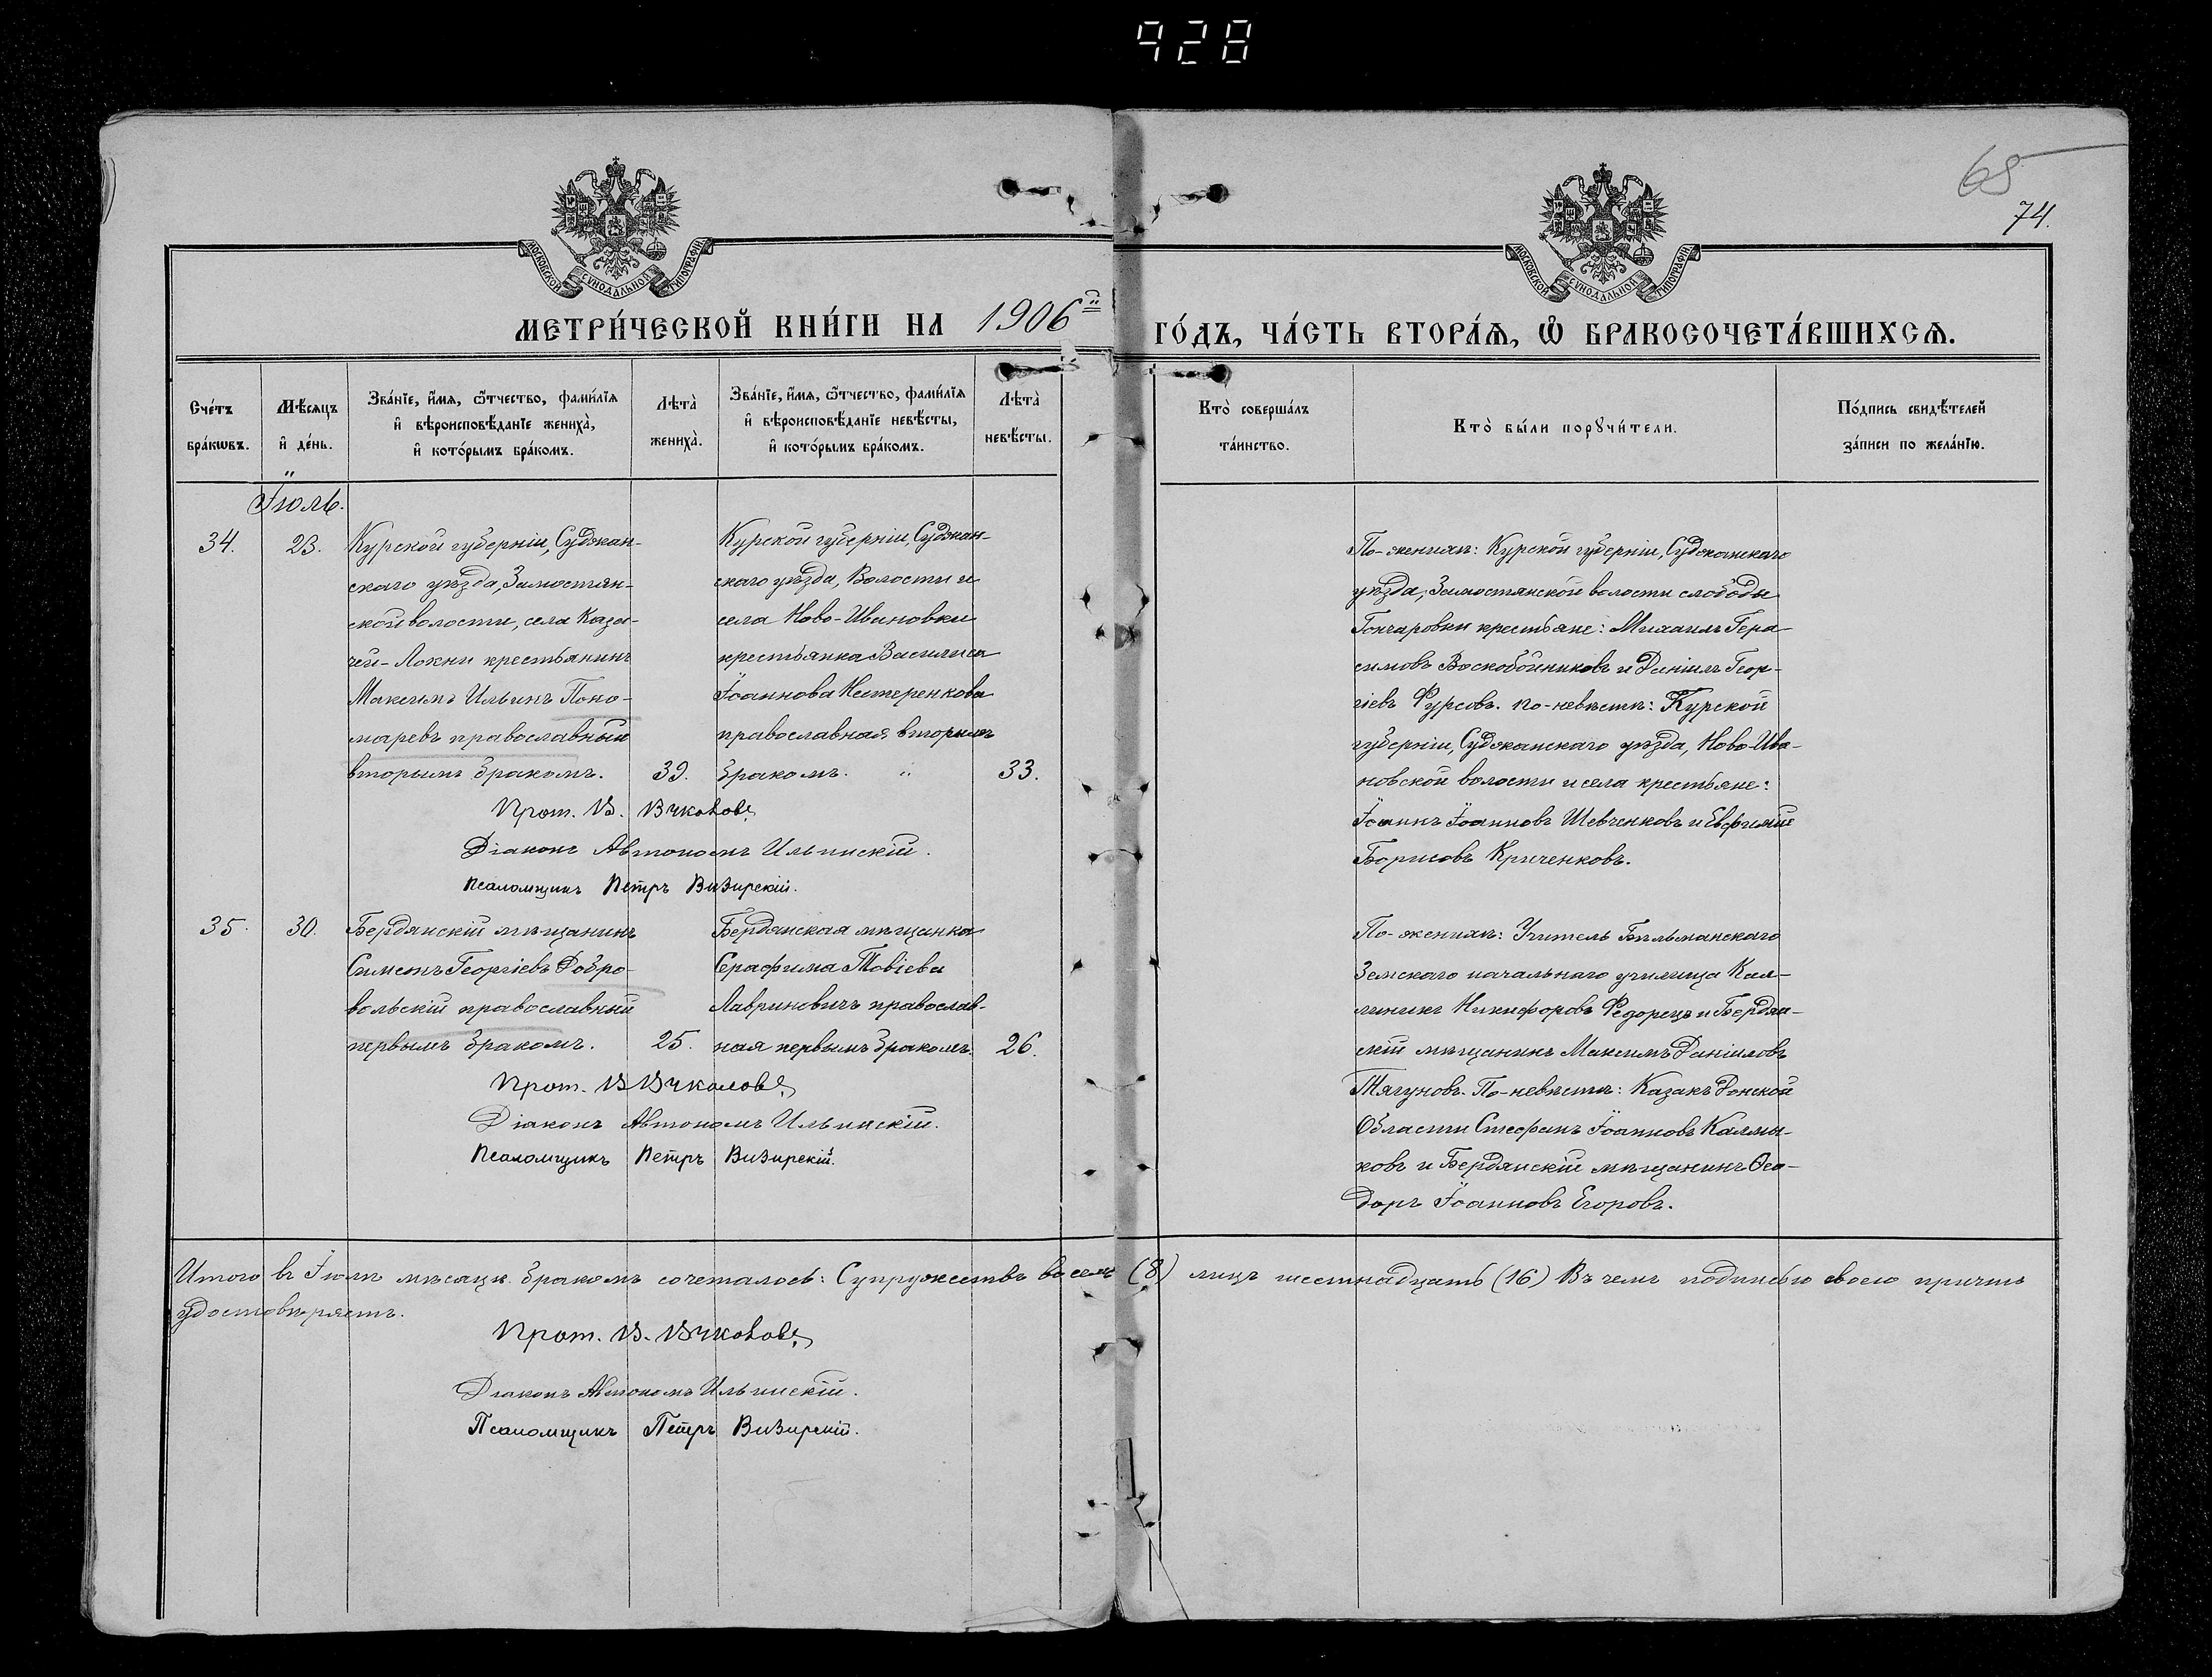 928
65
74.
МОСКОВСКОЙ СѴНОДАЛЬНОЙ ТИПОГРАФІИ
МОСКОВСКОЙ СѴНОДАЛЬНОЙ ТИПОГРАФІИ
МЕТРИ́ЧЕСКОЙ КНИ́ГИ НА 1906й ГО́ДЪ, ЧА́СТЬ ВТОРА́Я, Ѡ БРАКОСОЧЕТА́ВШИХСЯ.
Сче́тъ бра́кѡвъ.
Мѣ́сяцъ и де́нь.
Зва́нїе, и́мя, ѻ́тчество, фами́лїя
и вѣроисповѣ́данїе жениха̀,
и кото́рымъ бра́комъ.
Лѣта̀ жениха̀.
Зва́нїе, и́мя, ѻ́тчество, фами́лїя
и вѣроисповѣ́данїе невѣ́сты,
и кото́рымъ бра́комъ.
Лѣта̀ невѣ́сты.
Кто̀ соверша́лъ та́инство.
Кто̀ бы́ли порꙋчи́тели.
По́дпись свидѣ́телей за́писи по жела́нїю.
Іюль.
34.
23.
Курской губерніи, Суджан-
скаго уѣзда, Замостян-
ской волости, села Каза-
чей-Локни крестьянинъ
Максимъ Ильинъ Поно-
маревъ православный
вторымъ бракомъ.
39.
Курской губерніи, Суджан-
скаго уѣзда, Волости и
села Ново-Ивановки
крестьянка Василиса
Іоаннова Нестеренкова
православная вторымъ
бракомъ. "
33.
По-женихѣ: Курской губерніи, Суджанскаго
уѣзда, Замостянской волости слободы
Гончаровки крестьяне: Михаилъ Гера-
симовъ Воскобойниковъ и Даніилъ Геор-
гіевъ Фурсовъ. по-невѣстѣ: Курской
губерніи, Суджанскаго уѣзда, Ново-Ива-
новской волости и села крестьяне:
Іоаннъ Іоанновъ Шевченковъ и Евфимій
Борисовъ Криченковъ.
Прот. В.
Діаконъ Автономъ Ильинскій.
Псаломщикъ Петръ Визирскій.
35.
30.
Бердянскій мѣщанинъ
Симеонъ Георгіевъ Добро-
вольскій православный
первымъ бракомъ.
25.
Бердянская мѣщанка
Серафима Товіева
Лавриновичъ православ-
ная первымъ бракомъ.
26.
По-женихѣ: Учитель Бѣльманскаго
Земскаго начальнаго училища Кал-
линикъ Никифоровъ Федорецъ и Бердян-
скій мѣщанинъ Максимъ Даніиловъ
Тягуновъ. По-невѣстѣ: Казакъ Донской
Области Стефанъ Іоанновъ Калмы-
ковъ и Бердянскій мѣщанинъ Ѳео-
доръ Іоанновъ Егоровъ.
Прот. В
Діаконъ Автономъ Ильинскій.
Псаломщикъ Петръ Визирскій.
Итого въ Іюлѣ мѣсяцѣ бракомъ сочеталось: Супружествъ восемь (8) лицъ шестнадцать (16) Въ чемъ подписью своею причтъ
удостовѣряетъ.
Прот. В.
Діаконъ Автономъ Ильинскій.
Псаломщикъ Петръ Визирскій.